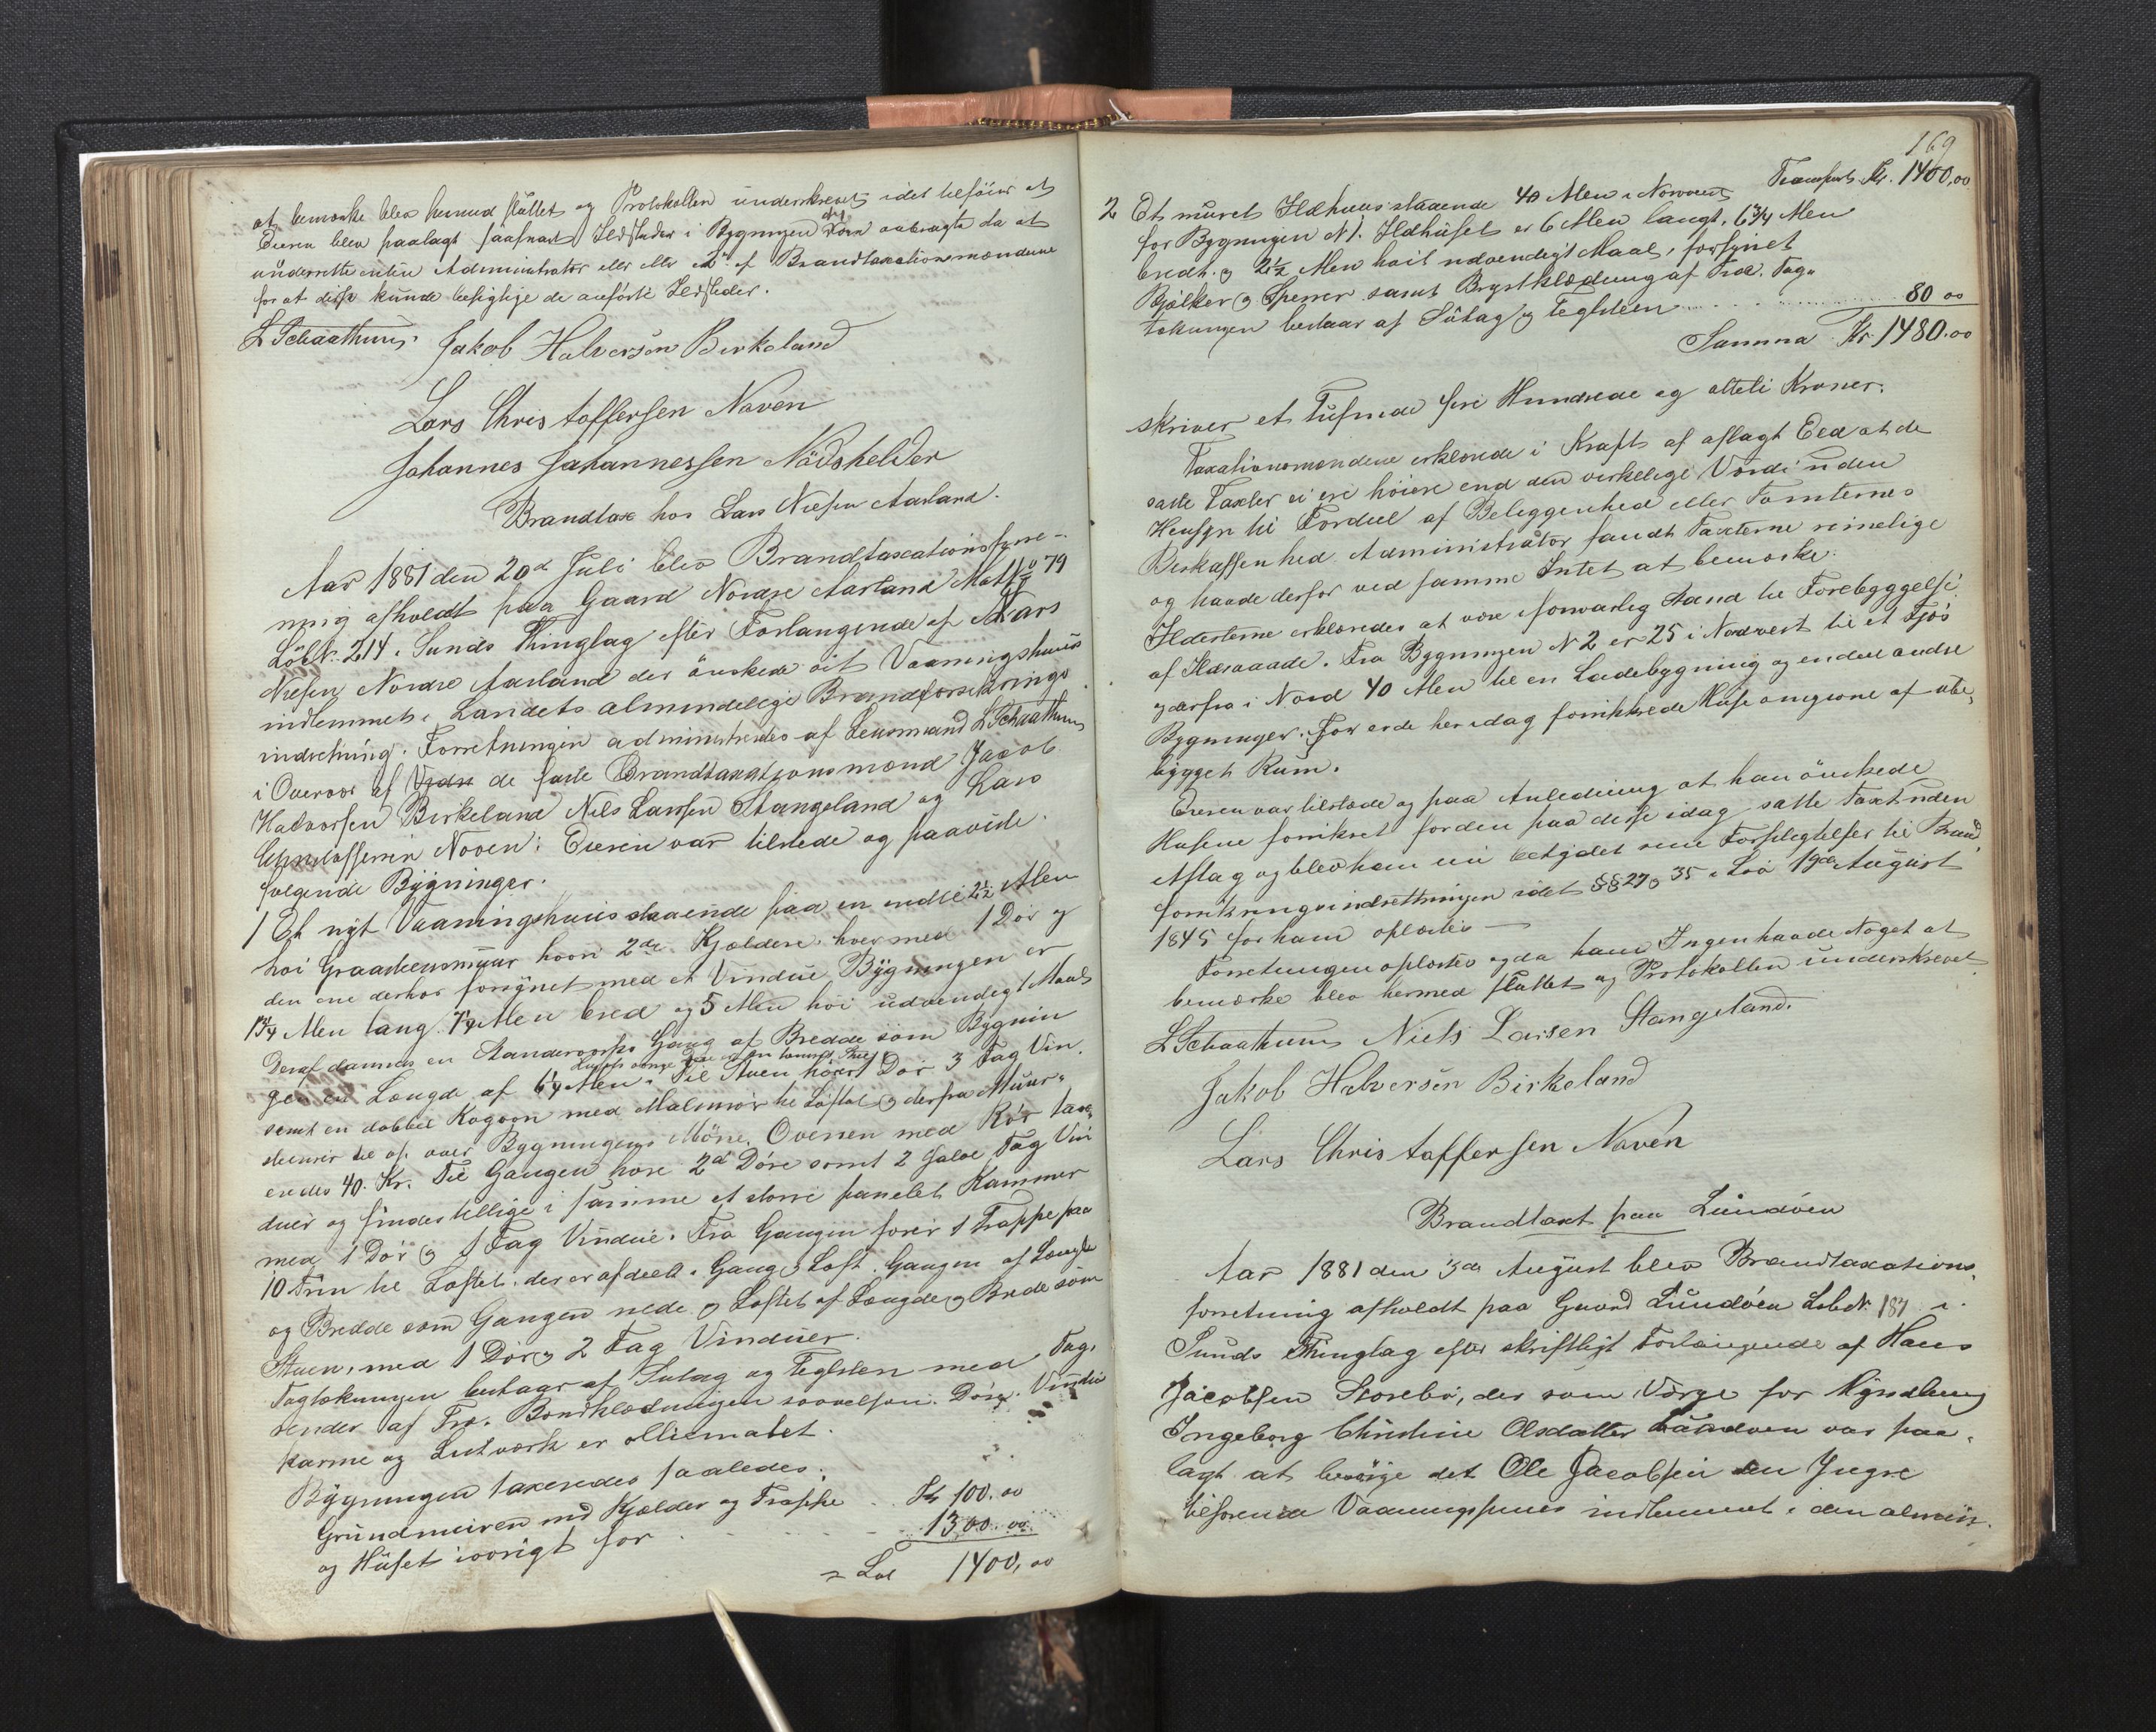 at bemærke blev hermed sluttet og Protokollen underskrevet idet tilföies at
Eieren blev paalagt saasnart Ildsteder i Bygningen anbragte da at
underrette enten Administrator eller 2de af Brandtaxationsmændene
for at disse kunde besigtige de anförte Ildsteder.
L Schaathun. Jakob Halversen Birkeland
Lars Christoffersen Naven
Johannes Johannessen Nödshelder
Brandtax hos Lars Nielsen Aarland.
Aar 1881 den 20de Juli blev Brandtaxationsforre-
ning afholdt paa Gaard Nordre Aarland Mat 79
LöbN. 214 i Sunds Thinglag efter Forlangende af Lars
Nielsen Nordre Aarland der önskede sit Vaaningshuus
indlemmet i Landets almindelige Brandforsikrings
indretning. Forretningen administreredes af Lensmand L Schaathun
i Overvær af de faste Brandtaxationsmænd Jacob
Halvorsen Birkeland Nils Larsen Stangeland og Lars
Christoffersen Noven. Eieren var tilstede og paaviste
følgende Bygninger.
1 Et nyt Vaaningshuus staaende paa en indtil 2½ Alen
höi Graasteensmuur hvori 2de Kjældere hver med 1 Dör og
den ene derhos forsynet med et Vindue Bygningen er
Alen lang. Alen bred og 5 Alen höi udvendigt Maal
Deraf dannes en Gang af Bredde som Bygnin
gen en Længde af 6¼ Alen. Til Stuen hörer 1 Dör 3 Fag Vin.
samt en dobbel Kogovn med Malmrör til Löftet og derfra Muur-
steensrör til op over Bygningens Möne. Ovenen med Rör taxe-
redes 40. Kr. Til Gangen höre 2de Döre samt 2 halve Fag Vin
duer og findes tillige i samme et större panelet Kammer
med 1 Dör og 1 Fag Vindue. Fra Gangen fører 1 Trappe paa
10 Trin til Loftet, der er afdeelt i Gang og Loft. Gangen af Længde
og Bredde som Gangen nede og Loftet af Længde og Brede som
Stuen, med 1 Dör og 2 Fag Vinduer.
Tagtækningen bestaar af Sutag og Teglsten med Tag-
render af Træ. Bordklædningen saavelsom Döre. Vindu
karme og Listværk er olliemalet.
Bygningen taxeredes saaledes:
Grundmuren med Kjælder og Trappe . Kr 100.00
og Huset iøvrigt for . . . . 1300.00
= Lat 1400,00
169
Transport Kr. 1400,00
2 Et muret Ildhuus staaende 40 Alen i Norvest
for Bygningen N 1. Ildhuset er 6 Alen langt, 6¾ Alen
bredt og 2½ Alen höit udvendigt Maal, forsynet
Bjælker og Sperrer samt Brystklædning af Træ. Tag-
tekningen bestaar af Sutag og Teglsteen . . . . 80 00
Summa Kr. 1480.00
skriver et Tusinde fire Hundrede og otteti Kroner.
Taxationsmændene erklærede i Kraft af aflagt Eed at de
satte Taxter ei ere höiere end den virkelige Værdi uden
Hensyn til Fordeel af Beliggenhed eller Tomternes
Beskaffenhed. Administrator fandt Taxterne rimelige
og havde derfor ved samme Intet at bemærke.
Ildsterne erklæredes at være i forsvarlig Stand til Forebyggelse
af Ildsvaade. Fra Bygningen N 2 er 25 i Nordvest til et Fjös
og derfra i Nord 40 Alen til en Ladebygning og endeel andre
Bygninger. For er de her idag forsikkrede Huse omgivne af ube-
bygget Rum.
Eieren var tilstede og paa Anledning at han önskede
Husene forsikret for den paa disse idag satte Taxt uden
Aftag og blev ham nu betydet sine Forpligtelser til Brand
forsikringsindretningen idet §§ 27 og 35 i Lov 19de August
1845 for ham oplæstes —
Forretningen oplæstes og da Ingen havde Noget at
bemærke blev hermed sluttet og Protokollen underskrevet
L Schaathun Niels Larsen Stangeland.
Jakob Halversen Birkeland
Lars Christoffersen Naven
Brandtaxt paa Lundöen
Aar 1881 den 3de August blev Brandtaxations-
forretning afholdt paa Gaard Lundöen LöbN. 187 i
Sunds Thinglag efter skriftligt Forlangende af Hans
Jacobsen Storebö, der som Værge for Myndling
Ingeborg Christine Olsdatter Lundöen var paa-
lagt at besörge det Ole Jacobsen den Yngre
tilhörende Vaaningshuus indlemmet i den almin-